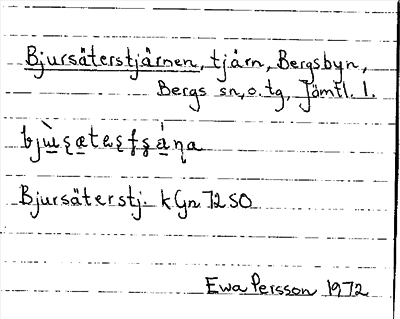 Bjursäterstjärnen, tjärn, Bergsbyn,
Bergs sn, o. tg, Jämtl. l.
Bjursäterstj. k Gn 72 SO
Ewa Persson 1972